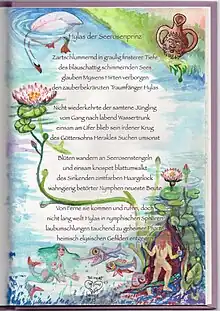 Hylas der Seerosenprinz
Zartschlummernd in graulig finsterer Tiefe
des blauschattig schimmernden Sees
glauben Mysiens Hirten verborgen
den zauberbekränzten Traumfänger Hylas
Nicht wiederkehrte der samtene Jüngling
vom Gang nach labend Wassertrunk
einsam am Ufer blieb sein irdener Krug
des Göttersohns Herakles Suchen umsonst
Blüten wandern an Seerosenstengeln
und einsam knospet blattumwallt
des Sinkenden zimtfarben Haargelock
wahngeng betörter Nymphen neueste Beute
Von Ferne sie kommen und rufen, doch
nicht lang weilt Hylas in nymphischen Sphären
laubumschlungen tauchend zu geheimer
heimisch elysischen Gefilden